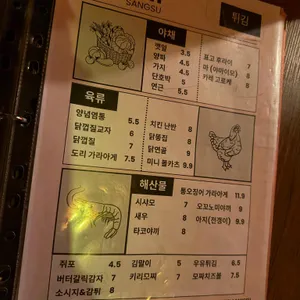 SANGSU
야채
깻잎 3.5
양파 4.5
가지 4.5
단호박 5
연근 5.5
튀김
표고 후라이 7
마 (야마이모) 6
카레 고로케 8
육류
양념염통 5.5
닭껍질교자 6
닭껍질 7
도리 가라아게 7.5
치킨 난반 8
닭똥집 8
닭연골 9
미니 롤카츠 9.9
해산물
시샤모 7
새우 8
타코야끼 8
통오징어 가라아게 11.9
오꼬노미야끼 9
아지(전갱이) 9.9
쥐포 4.5
버터갈릭감자 7
소시지&감튀 8
김말이 5
키리모찌 7
우유튀김 6.5
모짜치즈롤 7.5